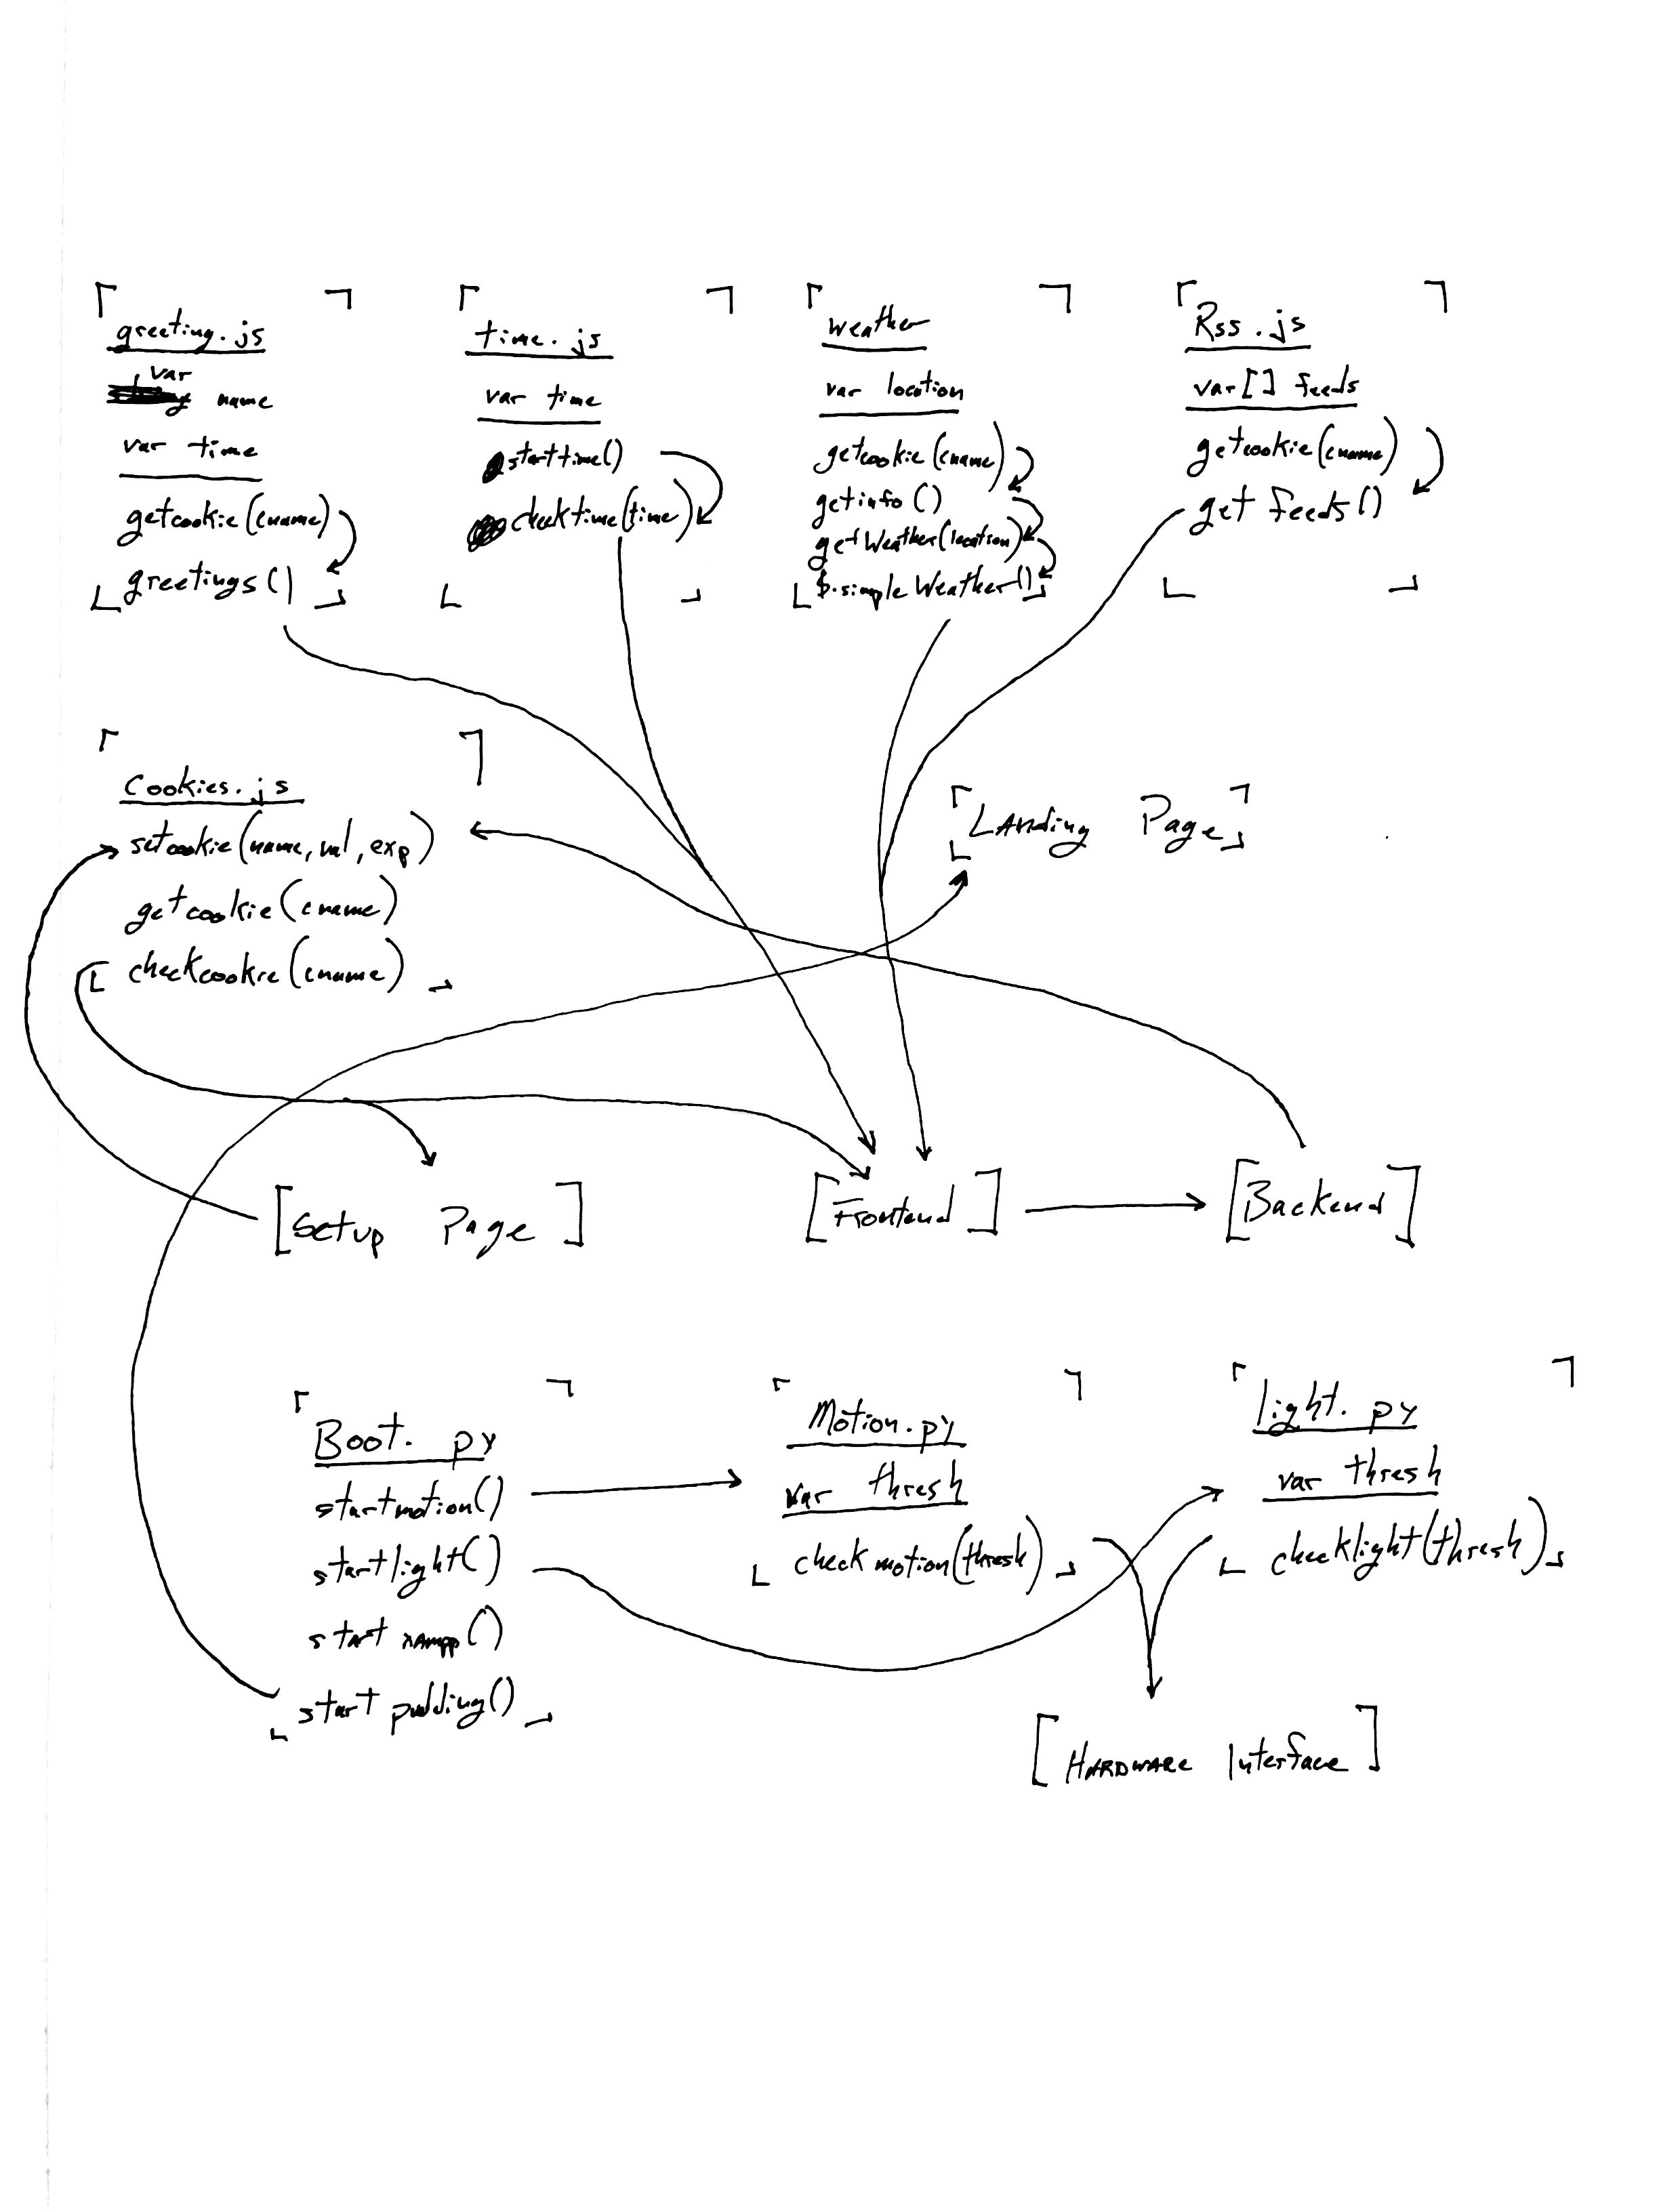 greeting.js
var
name
var time
getcookie(cname)
greetings()
time.js
var time
starttime()
checktime(time)
Weather
var location
getcookie(cname)
getinfo()
getWeather(location)
$.simpleWeather()
Rss.js
var[] feeds
getcookie(cname)
get feeds()
Cookies.js
setcookie(name, val, exp)
getcookie(cname)
checkcookie(cname)
Landing Page
[Setup Page]
[Frontend]
[Backend]
Boot.py
startmotion()
startlight()
start xampp()
start pudding()
Motion.py
var thresh
checkmotion(thresh)
light.py
var thresh
checklight(thresh)
[Hardware Interface]